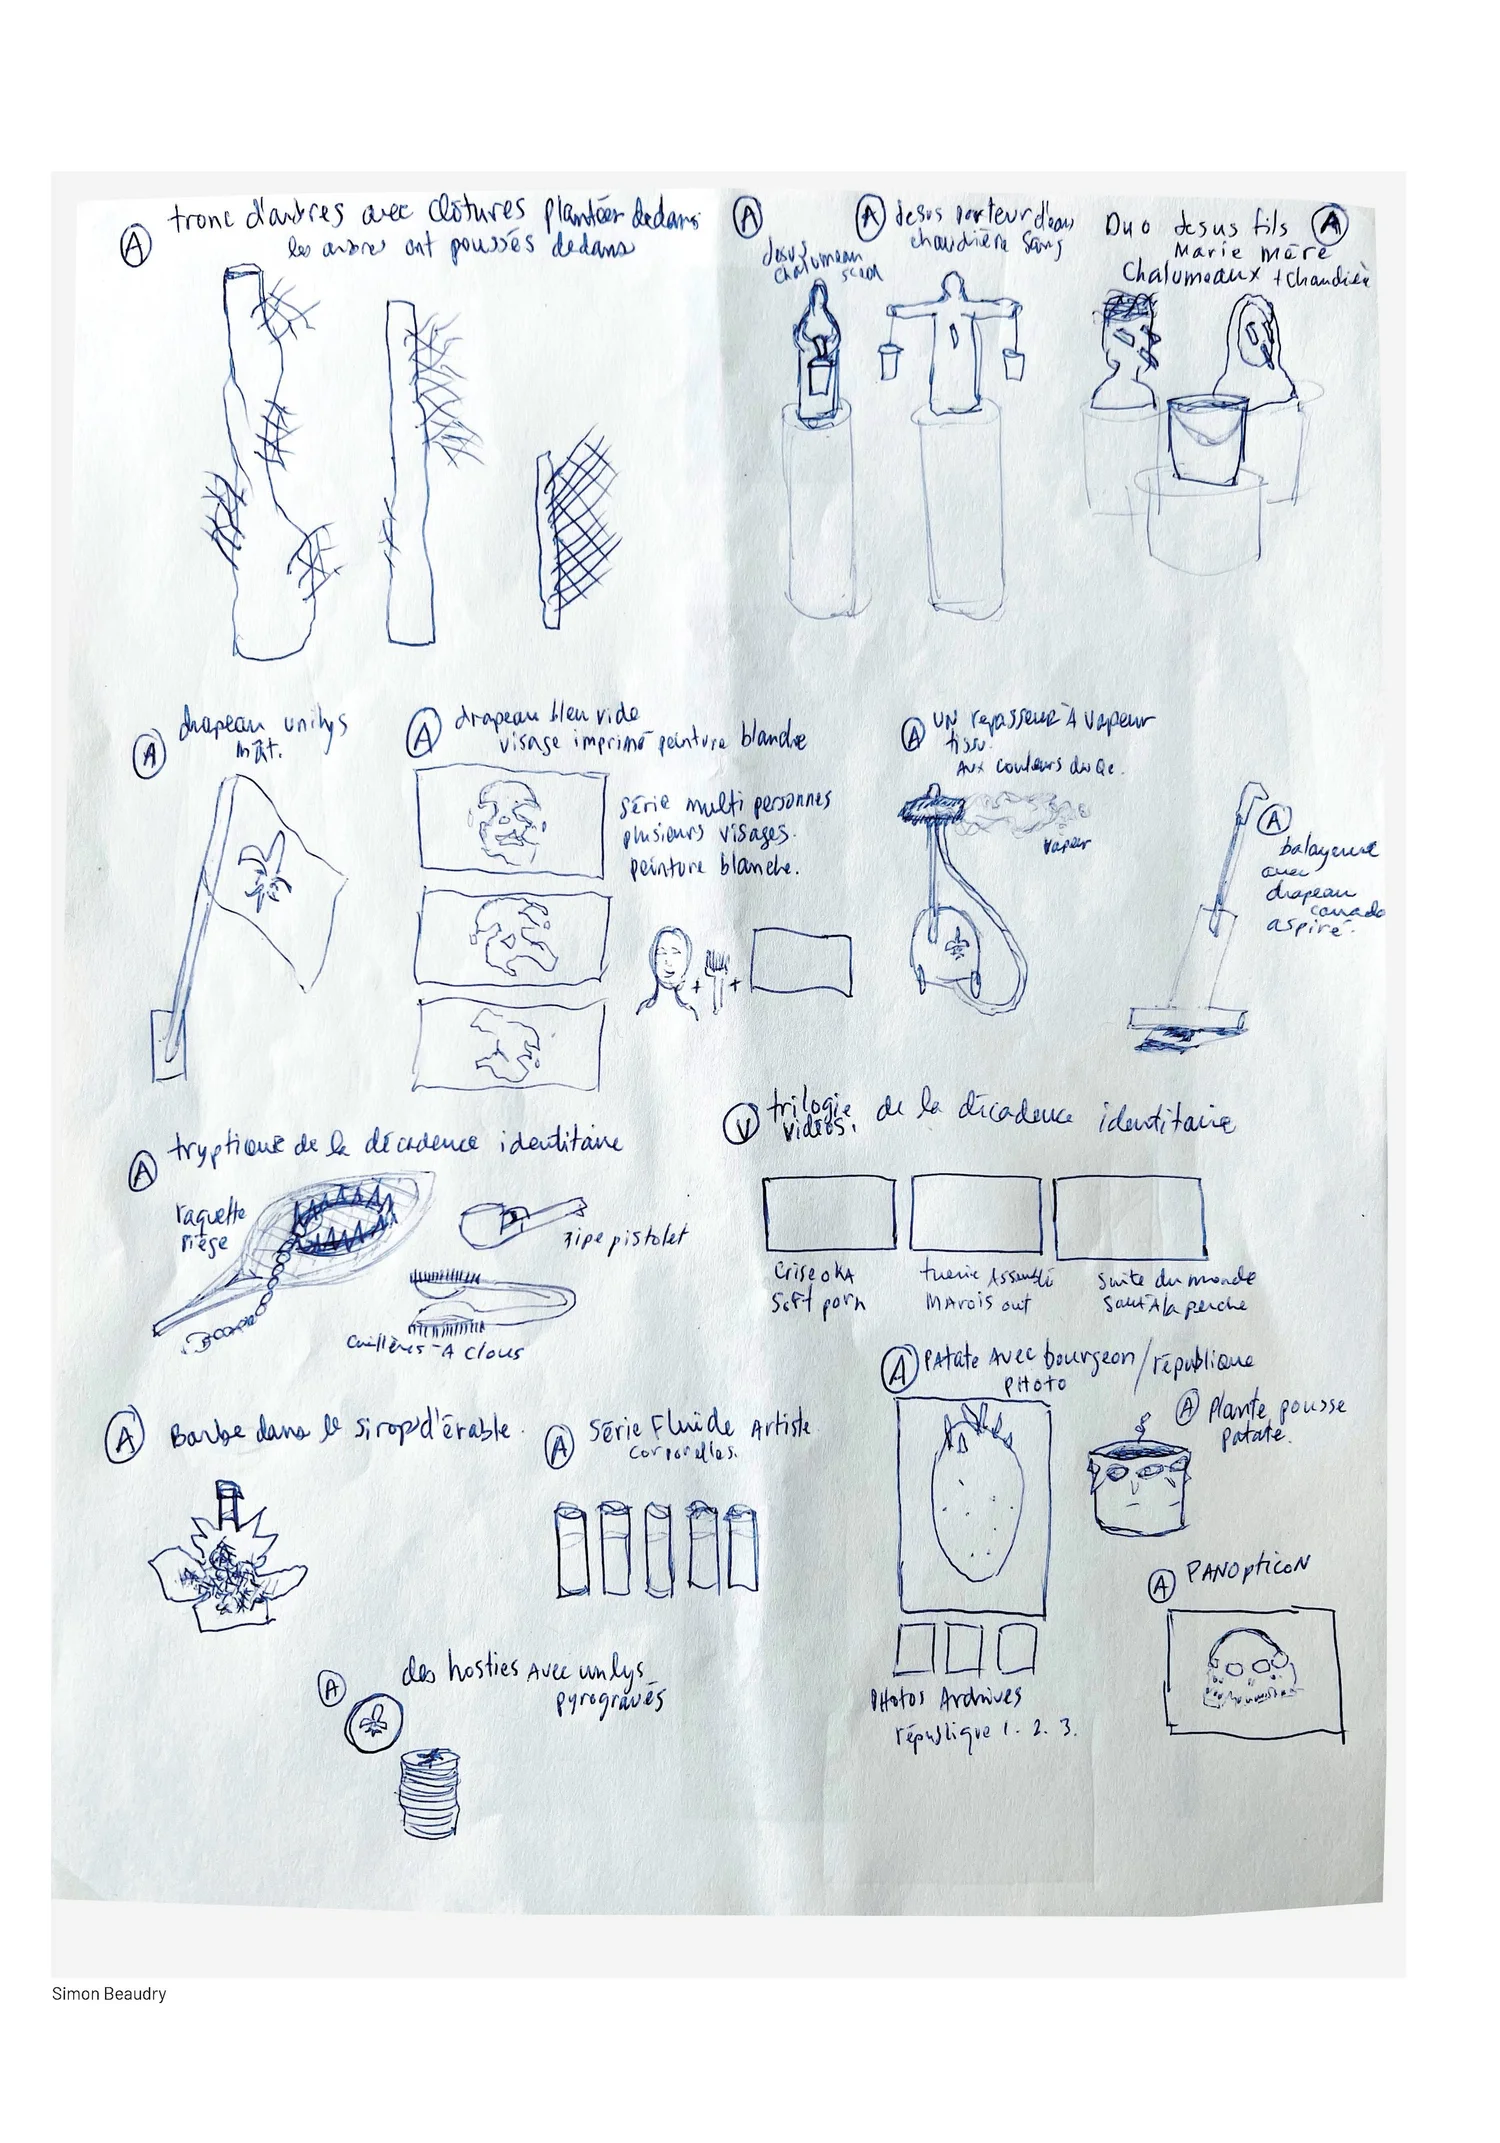 A tronc d'arbres avec clôtures plantées dedans
les arbres ont poussés dedans
A
Jesus
chalumeau
A Jesus porteur d'eau
chaudière sang
Duo Jesus fils A
Marie mère
Chalumeaux + chaudière
A drapeau unilys
mât.
A drapeau bleu vide
visage imprimé peinture blanche
série multi personnes
plusieurs visages.
peinture blanche.
+ +
A UN repasseur À vapeur
tissu.
Aux couleurs du Qc.
vapeur
A
balayeuse
avec
drapeau
canada
aspiré.
A tryptique de la décadence identitaire
raquette
piège
pipe pistolet
Cuillères À clous
V trilogie de la décadence identitaire
vidéos.
Crise OKA
Soft porn
tuerie Assemblé
MArois out
Suite du monde
Saut À la perche
A PAtate Avec bourgeon/république
PHoto
A Plante pousse
patate.
A Barbe dans le sirop d'érable.
A Série Fluide Artiste
corporelles.
A PANopticoN
PHotos Archives
république 1. 2. 3.
A des hosties Avec unlys
pyrogravés
Simon Beaudry